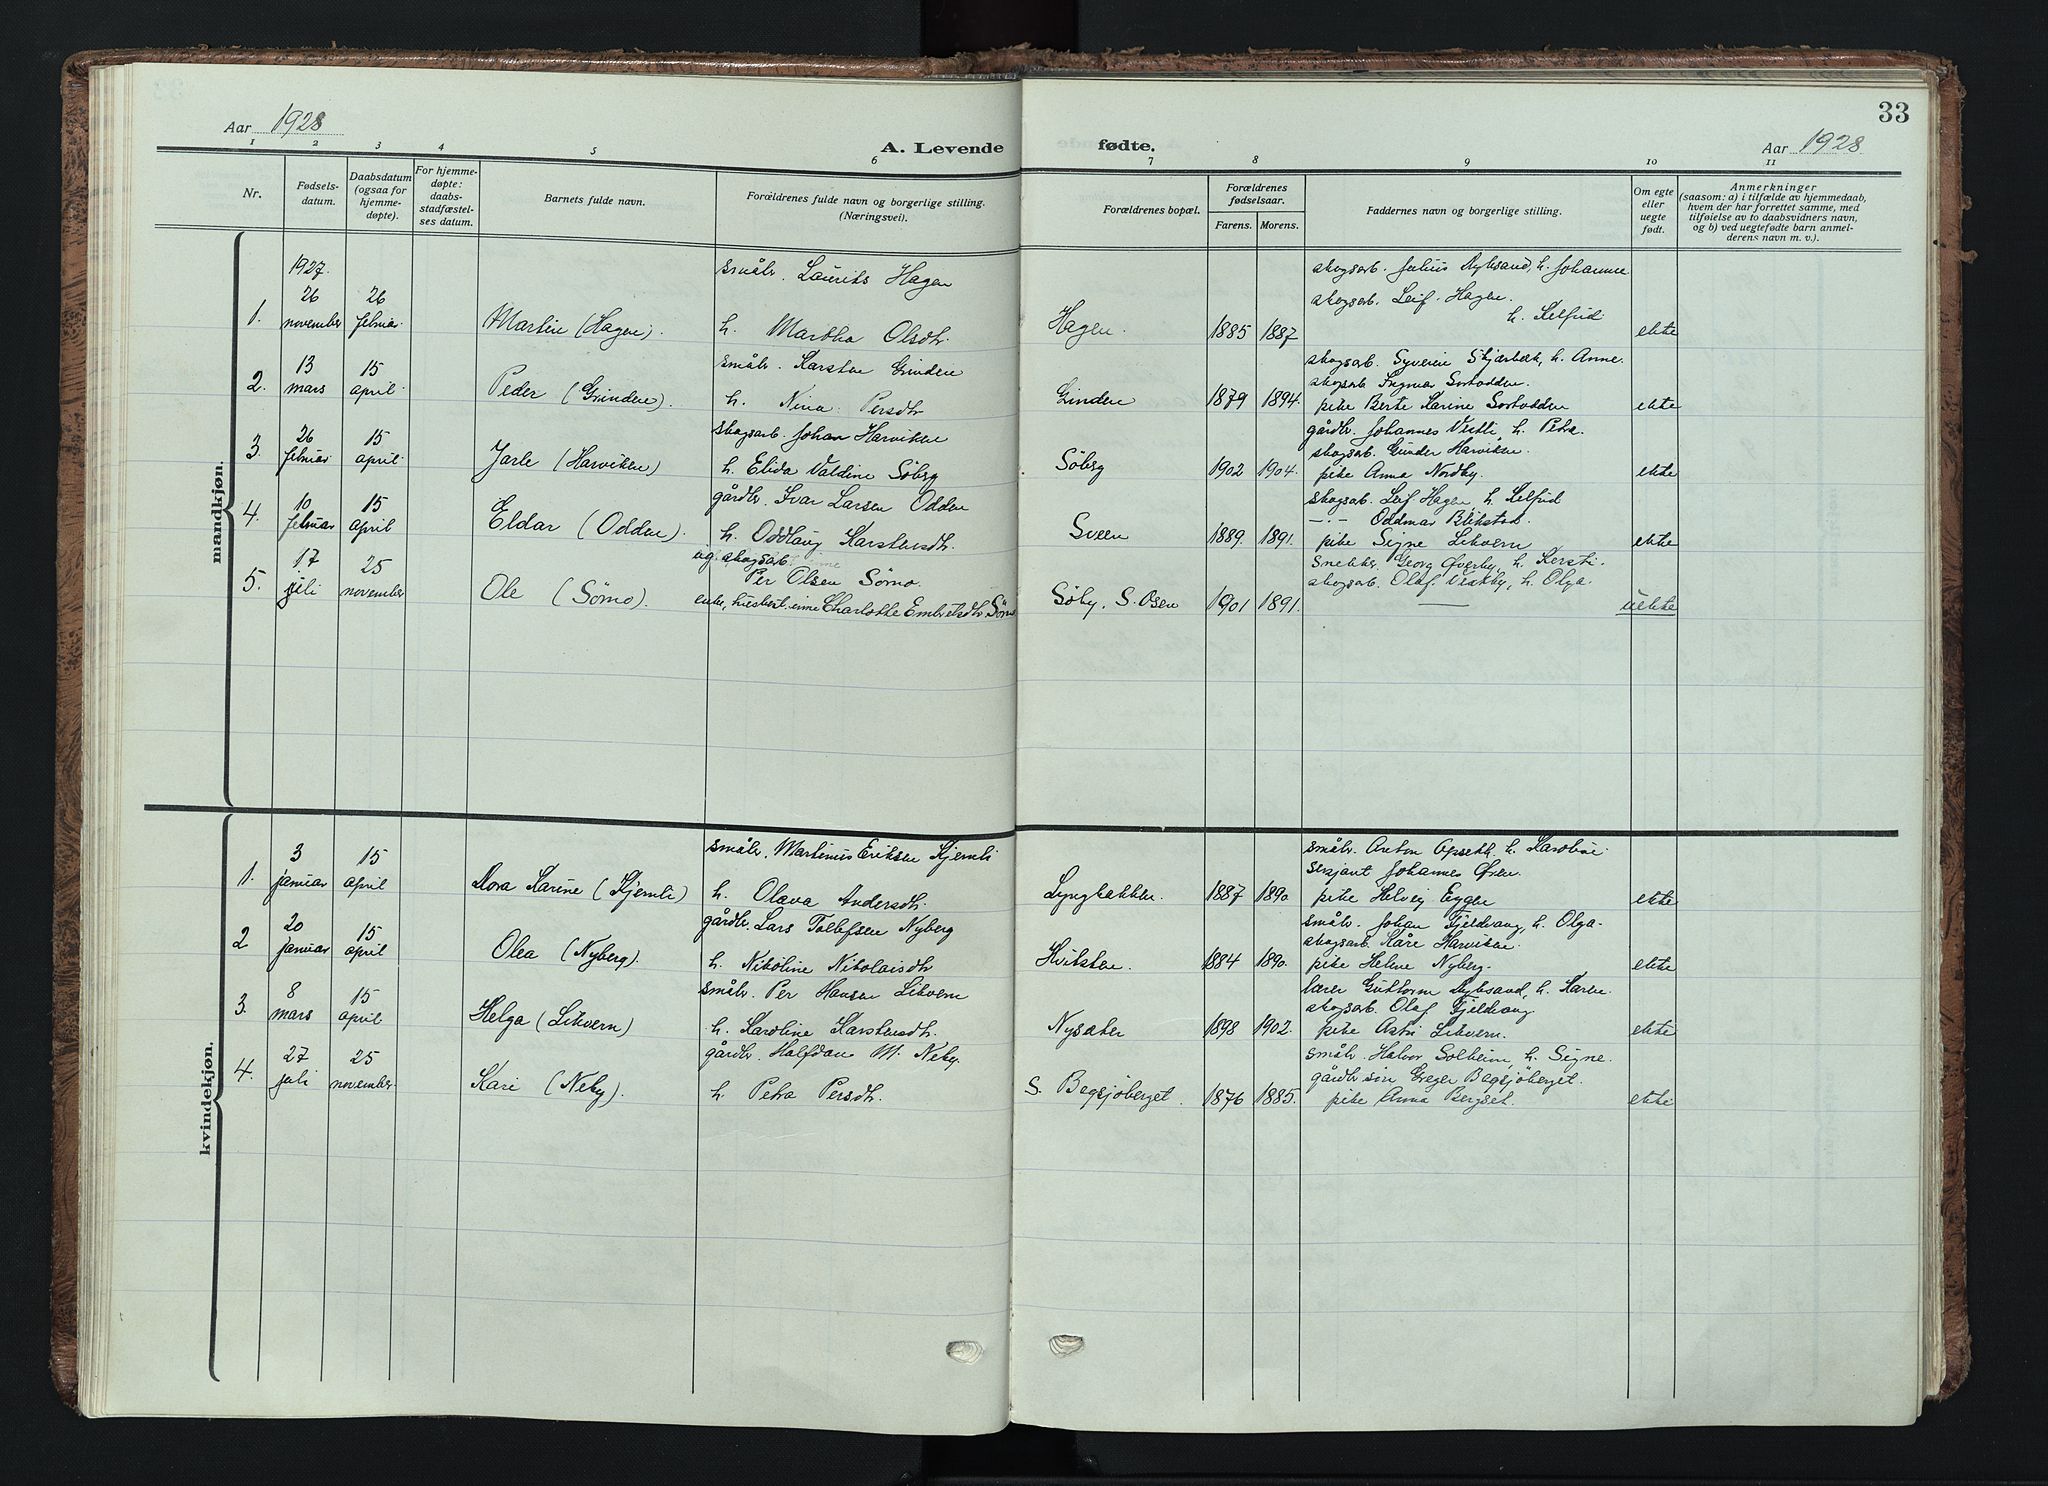 33
Aar 1928
A. Levende
fødte.
Aar 1928
1 2 3 4 5 6 7 8 9 10 11
Nr.
Fødsels-
datum.
Daabsdatum
(ogsaa for
hjemme-
døpte).
For hjemme-
døpte:
daabs-
stadfæstel-
ses datum.
Barnets fulde navn.
Forældrenes fulde navn og borgerlige stilling.
(Næringsvei).
Forældrenes bopæl.
Forældrenes
fødselsaar.
Farens. Morens.
Faddernes navn og borgerlige stilling.
Om egte
eller
uegte
født.
Anmerkninger
(saasom: a) i tilfælde av hjemmedaab,
hvem der har forrettet samme, med
tilføielse av to daabsvidners navn,
og b) ved uegtefødte barn anmel-
derens navn m. v.).
mandkjøn.
1.
1927.
26
november
26
februar
Martin (Hagen).
småbr. Laurits Hagen
h. Martha Olsdtr.
Hagen.
1885 1887
skogsarb. Julius Nybsand, h. Johanne
skogsarb. Leif Hagen.
h. Kelfrid
ekte
2.
13
mars
15
april.
Peder (Grinden).
småbr. Karsten Grinden
h. Nina Persdtr
Grinden
1879 1894.
skogsarb. Syverin Skjærbæk, h. Anne.
skogsarb. Ingmar Sorknodden.
pike Berte Karine
ekte
3.
26
februar
15
april.
Jarle (Harviken)
skogsarb. Johan Harviken
h. Elida Valdine Søberg
Søberg
1902 1904.
gårdbr. Johannes Vestli, h. Petra.
skogsarb. Gunder Harviken.
pike Anna Nordby.
ekte
4.
10
februar
15
april
Eldar (Odden).
gårdbr. Ivar Larsen Odden
h. Oddlaug Karstensdtr.
Sveen
1889. 1891.
skogsarb. Leif Hagen, h. Kelfrid
—·— Oddmar Blikstad.
pike Signe Likvern
ekte
5.
17
juli
25
november
Ole (Sørno).
ug. skogsarb.
Per Olsen Sørno.
enke, husbest. Charlotte Embretsdtr. Sørno
Søby, S. Osen
1901 1891.
snekker. Georg Øverby, h. Kersti.
skogsarb. Olaf Vestby, h. Olga.
—
uekte
kvindekjøn.
1.
3
januar
15
april
Dora Karine (Kjernli)
småbr. Martinus Eriksen Kjernli
h. Olava Andersdtr.
Lyngbakken
1887 1890
småbr. Anton Opseth. h. Karoline.
sersjant Johannes Øren.
pike Helvig Eggen
ekte
2
20
januar
15
april
Olea (Nyberg).
gårdbr. Lars Tollefsen Nyberg
h. Nikoline Nikolaisdtr
Hvitsten.
1884 1890.
småbr. Johan Fjeldvang, h. Olga.
skogsarb. Kåre Harviken.
pike Helene Nyberg.
ekte
3.
8
mars
15
april
Helga (Likvern)
småbr. Per Hansen Likvern
h. Karoline Karstensdtr.
Nysæter
1898 1902.
lærer Guttorm Nybsand, h. Karen.
skogsarb. Olaf Fjeldvang
pike Astri Likvern.
ekte
4.
27
juli
25
november
Kari (Neby).
gårdbr. Halfdan M. Neby.
h. Petra Persdtr.
S. Bagsjøberget.
1876 1885.
småbr. Halvor Solheim, h. Signe.
gårdbr. søn Greger Bagsjøberget.
pike Anna Bergset.
ekte